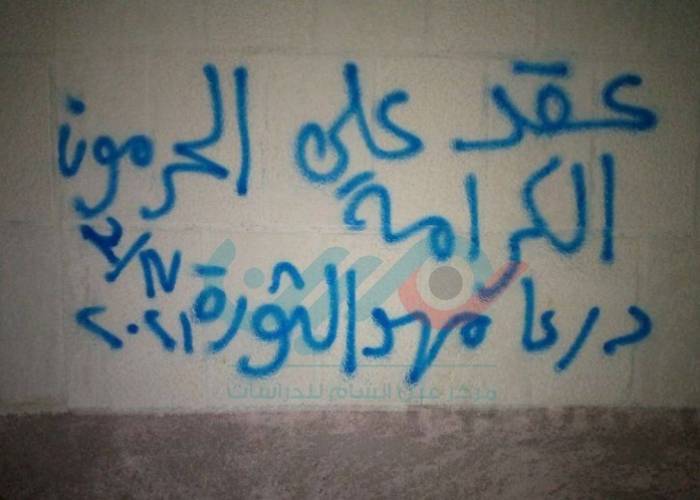 عقد على الحرمون
الكرامة
٣/١٧
درعا مهد الثورة ٢٠٢١
مركز عين الشام للدراسات